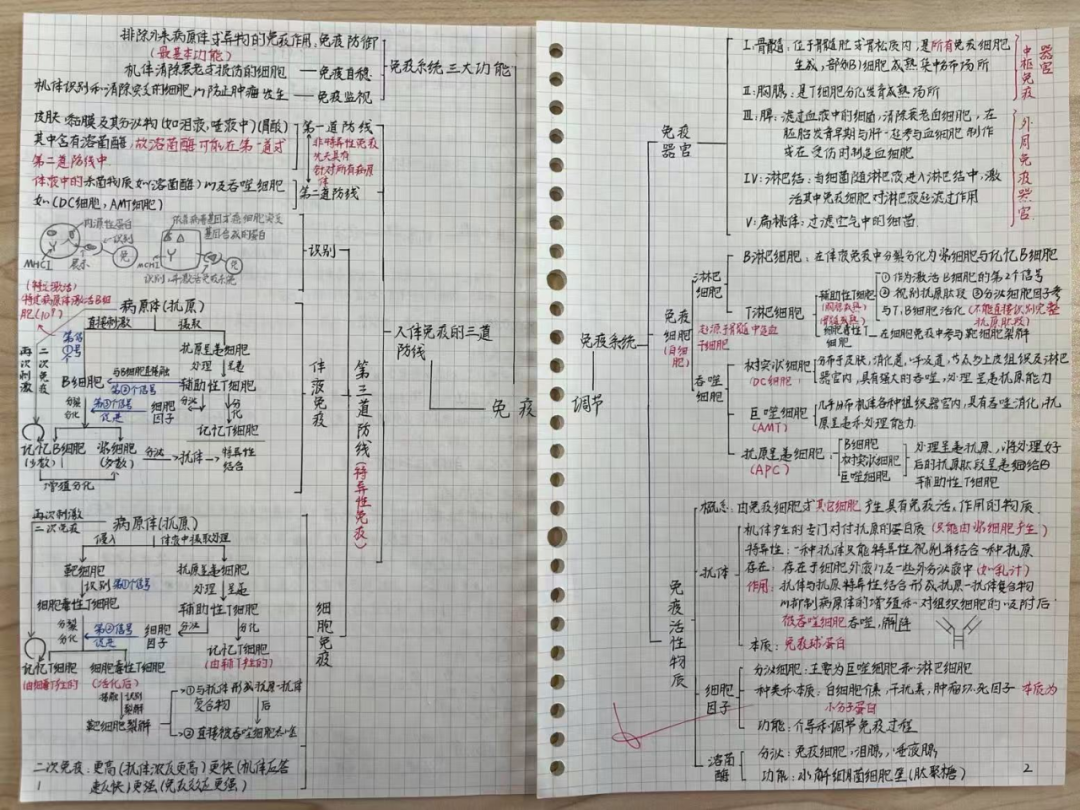 排除外来病原体或异物的免疫作用,免疫防御
(最基本功能)
机体清除衰老或损伤的细胞—免疫自稳
机体识别和清除突变的细胞以防止肿瘤发生—免疫监视
免疫系统三大功能
皮肤、黏膜及其分泌物(如泪液,唾液中)(胃酸)
其中含有溶菌酶,故溶菌酶可能在第一道或
第二道防线中
第一道防线
非特异性免疫
先天具有
针对所有病原体
体液中的杀菌物质(如溶菌酶)以及吞噬细胞
如(DC细胞,AMT细胞)
第二道防线
识别
MHCI
展示
识别
免
人体免疫的三道
防线
免疫
第三道防线(特异性免疫)
体液免疫
(特定激活)
病原体(抗原)
直接刺激
摄取
抗原呈递细胞
处理 呈递
再次刺激
二次免疫
B细胞
与B细胞接触
辅助性T细胞
分裂
分化
第②个信号
促进
细胞
因子
分泌
分化
记忆T细胞
记忆B细胞
(少数)
浆细胞
(多数)
分泌
抗体
特异性
结合
增殖分化
细胞免疫
再次刺激
二次免疫
病原体(抗原)
侵入
体液中摄取处理
靶细胞
抗原呈递细胞
识别
第①个信号
处理 呈递
细胞毒性T细胞
辅助性T细胞
分裂
分化
第②信号
促进
细胞
因子
分泌
分化
记忆T细胞
记忆T细胞
细胞毒性T细胞
(活化后)
识别
裂解
靶细胞裂解
①与抗体形成抗原-抗体
复合物
后
②直接被吞噬细胞吞噬
二次免疫:更高(抗体浓度更高)更快(机体应答
更快)更强(免疫效应更强)
1
免疫系统
调节
免疫
器官
I:骨髓,位于骨髓腔或骨松质内,是所有免疫细胞
生成,部分B细胞成熟集中分布场所
II:胸腺:是T细胞分化发育成熟场所
中枢免疫器官
III:脾:滤过血液中的细菌,清除衰老血细胞,在
胚胎发育早期与肝一起参与血细胞制作
或在受伤时制造血细胞
IV:淋巴结:当细菌随淋巴液进入淋巴结中,激
活其中免疫细胞对淋巴液起滤过作用
V:扁桃体:过滤空气中的细菌
外周免疫器官
免疫
细胞
(白细胞)
淋巴
细胞
B淋巴细胞:在体液免疫中分裂分化为浆细胞与记忆B细胞
T淋巴细胞
辅助性T细胞
①作为激活B细胞的第2个信号
②识别抗原肽段 ③分泌细胞因子参
与T,B细胞活化(不能直接识别完整
抗原肽段)
细胞毒性T
细胞
在细胞免疫中参与靶细胞裂解
起源于骨髓中造血
干细胞
吞噬
细胞
树突状细胞
(DC细胞)
分布于皮肤,消化道,呼吸道,等众多上皮组织及淋巴
器官内,具有强大的吞噬,处理呈递抗原能力
巨噬细胞
(AMT)
几乎分布机体各种组织器官内,具有吞噬消化,抗
原呈递和处理能力
抗原呈递细胞
(APC)
B细胞
树突状细胞
巨噬细胞
处理呈递抗原,将处理好
后的抗原肽段呈递给的
辅助性T细胞
免疫活性物质
概念:由免疫细胞或其它细胞产生具有免疫活,作用的物质
抗体
机体产生的专门对付抗原的蛋白质(只能由浆细胞产生)
特异性:一种抗体只能特异性识别并结合一种抗原
存在:存在于细胞外液以及一些外分泌液中(如乳汁)
作用:抗体与抗原特异性结合形成抗原-抗体复合物
以抑制病原体的增殖和对组织细胞的吸附后
被吞噬细胞吞噬,降解
本质:免疫球蛋白
细胞
因子
分泌细胞:主要为巨噬细胞和淋巴细胞
种类和本质:白细胞介素,干扰素,肿瘤坏死因子 本质为
小分子蛋白
功能:介导和调节免疫过程
溶菌
酶
分泌:免疫细胞,泪腺,唾液腺
功能:水解细菌细胞壁(肽聚糖)
2